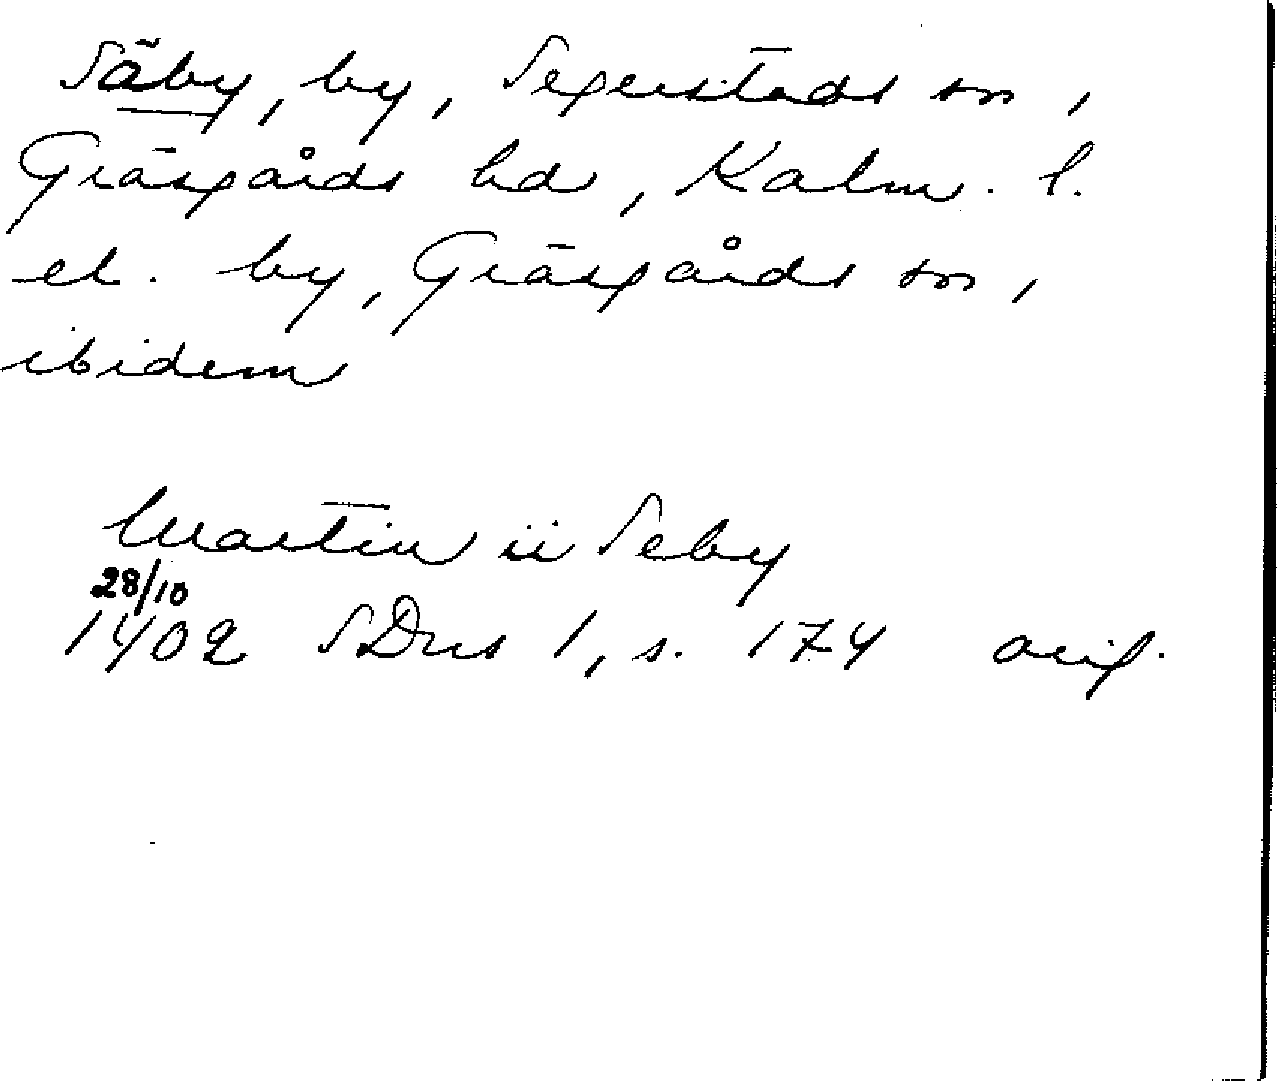 Säby, by, Segerstads sn,
Gräsgårds hd, Kalm. l.
el. by, Gräsgårds sn,
ibidem
Martin ii Seby
28/10
1402 SDns 1, s. 174 orig.